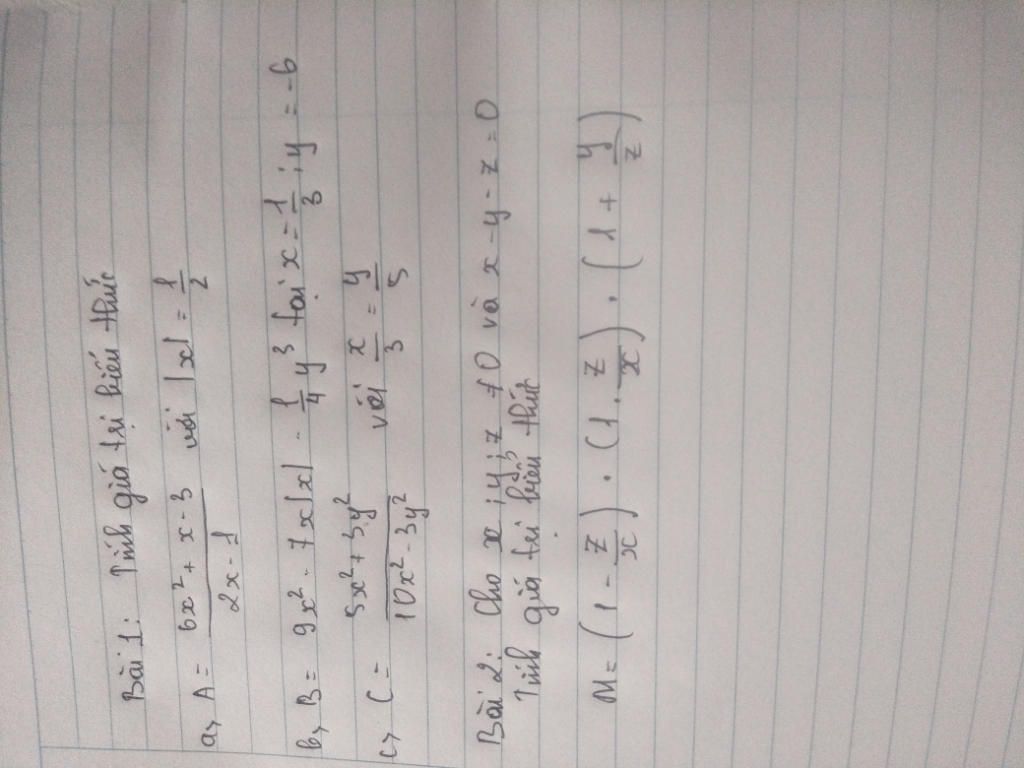 Bài 1: Tính giá tại biến thức
a, A = (6x² + x - 3)/(2x - 1) với |x| = 1/2
b, B = 9x² - 7x|x| - 1/4 y³ tại x = 1/3 ; y = -6
c, C = (5x² + 3y²)/(10x² - 3y²) với x/3 = y/5
Bài 2: Cho x ; y ; z ≠ 0 và x - y - z = 0
Tính giá tại biểu thức
M = (1 - z/x) . (1 . z/x) . (1 + y/z)